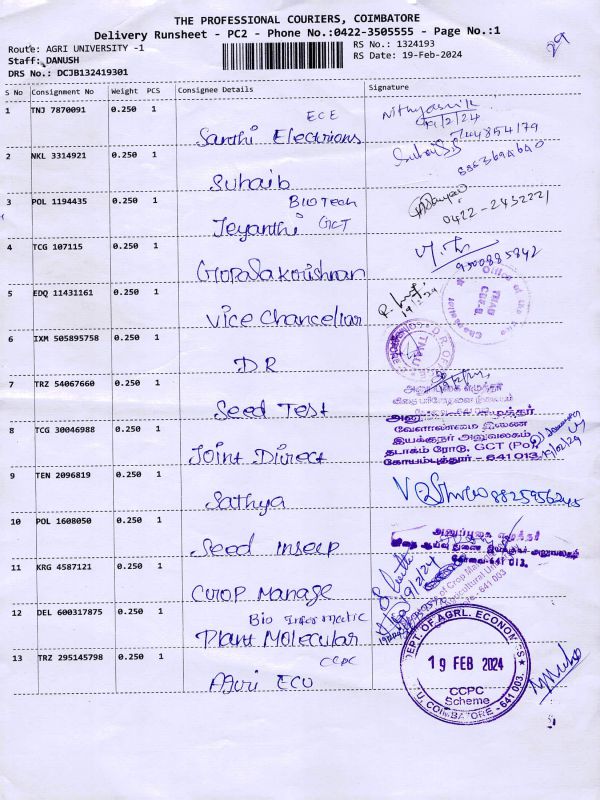 THE PROFESSIONAL COURIERS, COIMBATORE
Delivery Runsheet - PC2 - Phone No.:0422-3505555 - Page No.:1
29
Route: AGRI UNIVERSITY -1
RS No.: 1324193
Staff: DANUSH
RS Date: 19-Feb-2024
DRS No.: DCJB132419301
S No Consignment No Weight PCS Consignee Details Signature
1 TNJ 7870091 0.250 1 ECE
Santhi Electrions
19/2/24
2 NKL 3314921 0.250 1
Suhaib
3 POL 1194435 0.250 1 BIOTech
Jeyanthi GCT
0422-2432221
4 TCG 107115 0.250 1
Gopasakrishnan
9500885842
5 EDQ 11431161 0.250 1
Vice Chancellar
19/2/24
6 IXM 505895758 0.250 1
D.R
7 TRZ 54067660 0.250 1
Seed Test
அனுப்புகை எழுத்தர்
வேளாண்மை இணை
இயக்குநர் அலுவலகம்
தடாகம் ரோடு, GCT (Po),
கோயம்புத்தூர் - 641 013.
8 TCG 30046988 0.250 1
Joint Direct
9 TEN 2096819 0.250 1
Sathya
8825956245
10 POL 1608050 0.250 1
Seed insecp
அனுப்புகை எழுத்தர்
கோவை-641 013.
11 KRG 4587121 0.250 1
Crop Manage
12 DEL 600317875 0.250 1 Bio Informetic
Plant Molecular
13 TRZ 295145798 0.250 1 CCPC
Agri ECU
DEPT. OF AGRL. ECONOMICS
19 FEB 2024
CCPC
Scheme
T.N.A.U. COIMBATORE - 641 003.